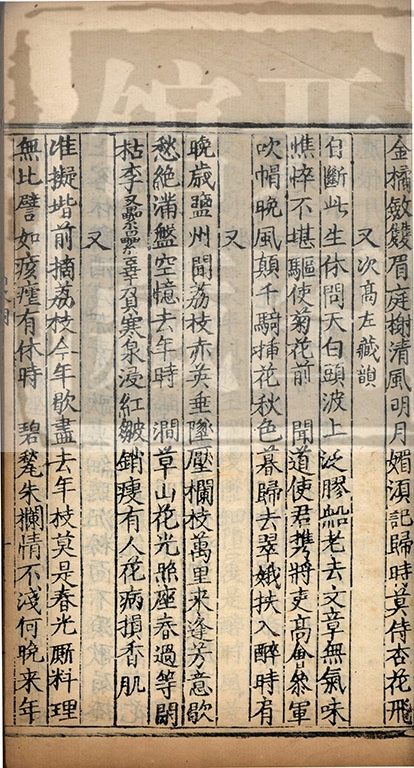 眉庭榭清風明月媚湏記歸時莫待杏花飛
又次高左藏韻
自斷此生休問天白頭波上泛膠船老去文章無氣味
憔悴不堪驅使菊花前　聞道使君携將吏高會叅軍
吹帽晚風顛千騎揷花秋色暮歸去翠娥扶入醉時有
又
晚歲盬州聞荔枝赤英垂墜壓欄枝萬里來逢芳意歇
愁絕滿盤空憶去年時　澗草山花光照座春過等閑
枯李又纍纍辜負寒泉浸紅皺銷瘦有人花病損香肌
又
准擬堦前摘荔枝今年歇盡去年枝莫是春光厮料理
無比譬如痎瘧有休時　碧甃朱攔情不淺何晚来年